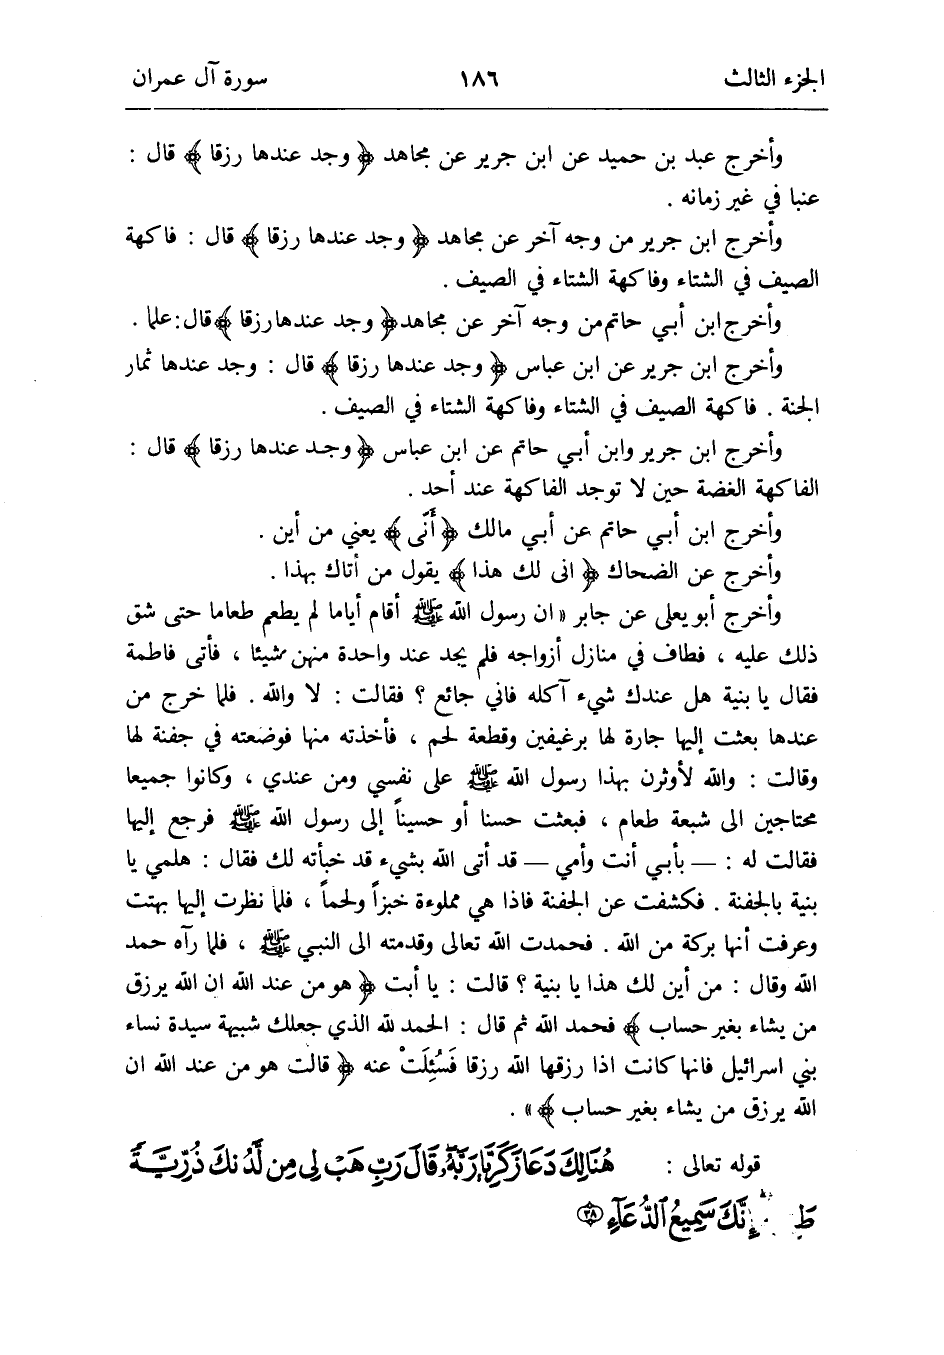 الجزء الثالث ١٨٦ سورة آل عمران
وأخرج عبد بن حميد عن ابن جرير عن مجاهد ﴿ وجد عندها رزقا ﴾ قال :
عنبا في غير زمانه .
وأخرج ابن جرير من وجه آخر عن مجاهد ﴿ وجد عندها رزقا ﴾ قال : فاكهة
الصيف في الشتاء وفاكهة الشتاء في الصيف .
وأخرج ابن أبي حاتم من وجه آخر عن مجاهد ﴿ وجد عندها رزقا ﴾ قال : علما .
وأخرج ابن جرير عن ابن عباس ﴿ وجد عندها رزقا ﴾ قال : وجد عندها ثمار
الجنة . فاكهة الصيف في الشتاء وفاكهة الشتاء في الصيف .
وأخرج ابن جرير وابن أبي حاتم عن ابن عباس ﴿ وجد عندها رزقا ﴾ قال :
الفاكهة الغضة حين لا توجد الفاكهة عند أحد .
وأخرج ابن أبي حاتم عن أبي مالك ﴿ أَنّى ﴾ يعني من أين .
وأخرج عن الضحاك ﴿ انى لك هذا ﴾ يقول من أتاك بهذا .
وأخرج أبو يعلى عن جابر « ان رسول الله ﷺ أقام أياما لم يطعم طعاما حتى شق
ذلك عليه ، فطاف في منازل أزواجه فلم يجد عند واحدة منهن شيئا ، فأتى فاطمة
فقال يا بنية هل عندك شيء آكله فاني جائع ؟ فقالت : لا والله . فلما خرج من
عندها بعثت إليها جارة لها برغيفين وقطعة لحم ، فأخذته منها فوضعته في جفنة لها
وقالت : والله لأوثرن بهذا رسول الله ﷺ على نفسي ومن عندي ، وكانوا جميعا
محتاجين الى شبعة طعام ، فبعثت حسنا أو حسيناً إلى رسول الله ﷺ فرجع إليها
فقالت له : — بأبي أنت وأمي — قد أتى الله بشيء قد خبأته لك فقال : هلمي يا
بنية بالجفنة . فكشفت عن الجفنة فاذا هي مملوءة خبزاً ولحماً ، فلما نظرت إليها بهتت
وعرفت أنها بركة من الله . فحمدت الله تعالى وقدمته الى النبي ﷺ ، فلما رآه حمد
الله وقال : من أين لك هذا يا بنية ؟ قالت : يا أبت ﴿ هو من عند الله ان الله يرزق
من يشاء بغير حساب ﴾ فحمد الله ثم قال : الحمد لله الذي جعلك شبيهة سيدة نساء
بني اسرائيل فانها كانت اذا رزقها الله رزقا فَسُئِلَتْ عنه ﴿ قالت هو من عند الله ان
الله يرزق من يشاء بغير حساب ﴾ » .
قوله تعالى : هُنَالِكَ دَعَا زَكَرِيَّا رَبَّهُ قَالَ رَبِّ هَبْ لِي مِن لَّدُنكَ ذُرِّيَّةً
إِنَّكَ سَمِيعُ الدُّعَآءِ ٣٨